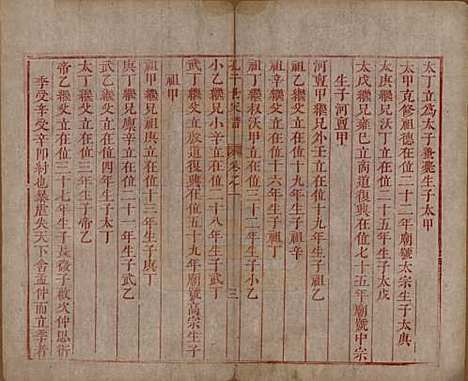 太丁立為太子蚤薨生子太甲
太甲克修祖德在位三十三年廟號太宗生子
太庚繼兄沃丁立在位二十五年生子太戊
太戊繼兄雍巳立商道復興在位七十五年廟號中宗
生子河亶甲
河亶甲繼兄外壬立在位九年生子祖乙
祖乙繼父立在位十九年生子祖辛
祖辛繼父立在位十六年生子祖丁
祖丁繼叔沃甲立在位三十二年生子小乙
孔子世家譜
卷之一
三
小乙繼兄小辛立在位二十八年生子武丁
武丁繼父立殷道復興在位五十九年廟號高宗生子
祖甲
祖甲繼兄祖庚立在位三十三年生子庚丁
庚丁繼兄廩辛立在位二十一年生子武乙
武乙繼父立在位四年生子太丁
太丁繼父立在位三年生子帝乙
帝乙繼父立在位三十七年生子長微子啟次仲思衍
季受辛受辛即紂也暴虐失天下舍孟仲而立季者